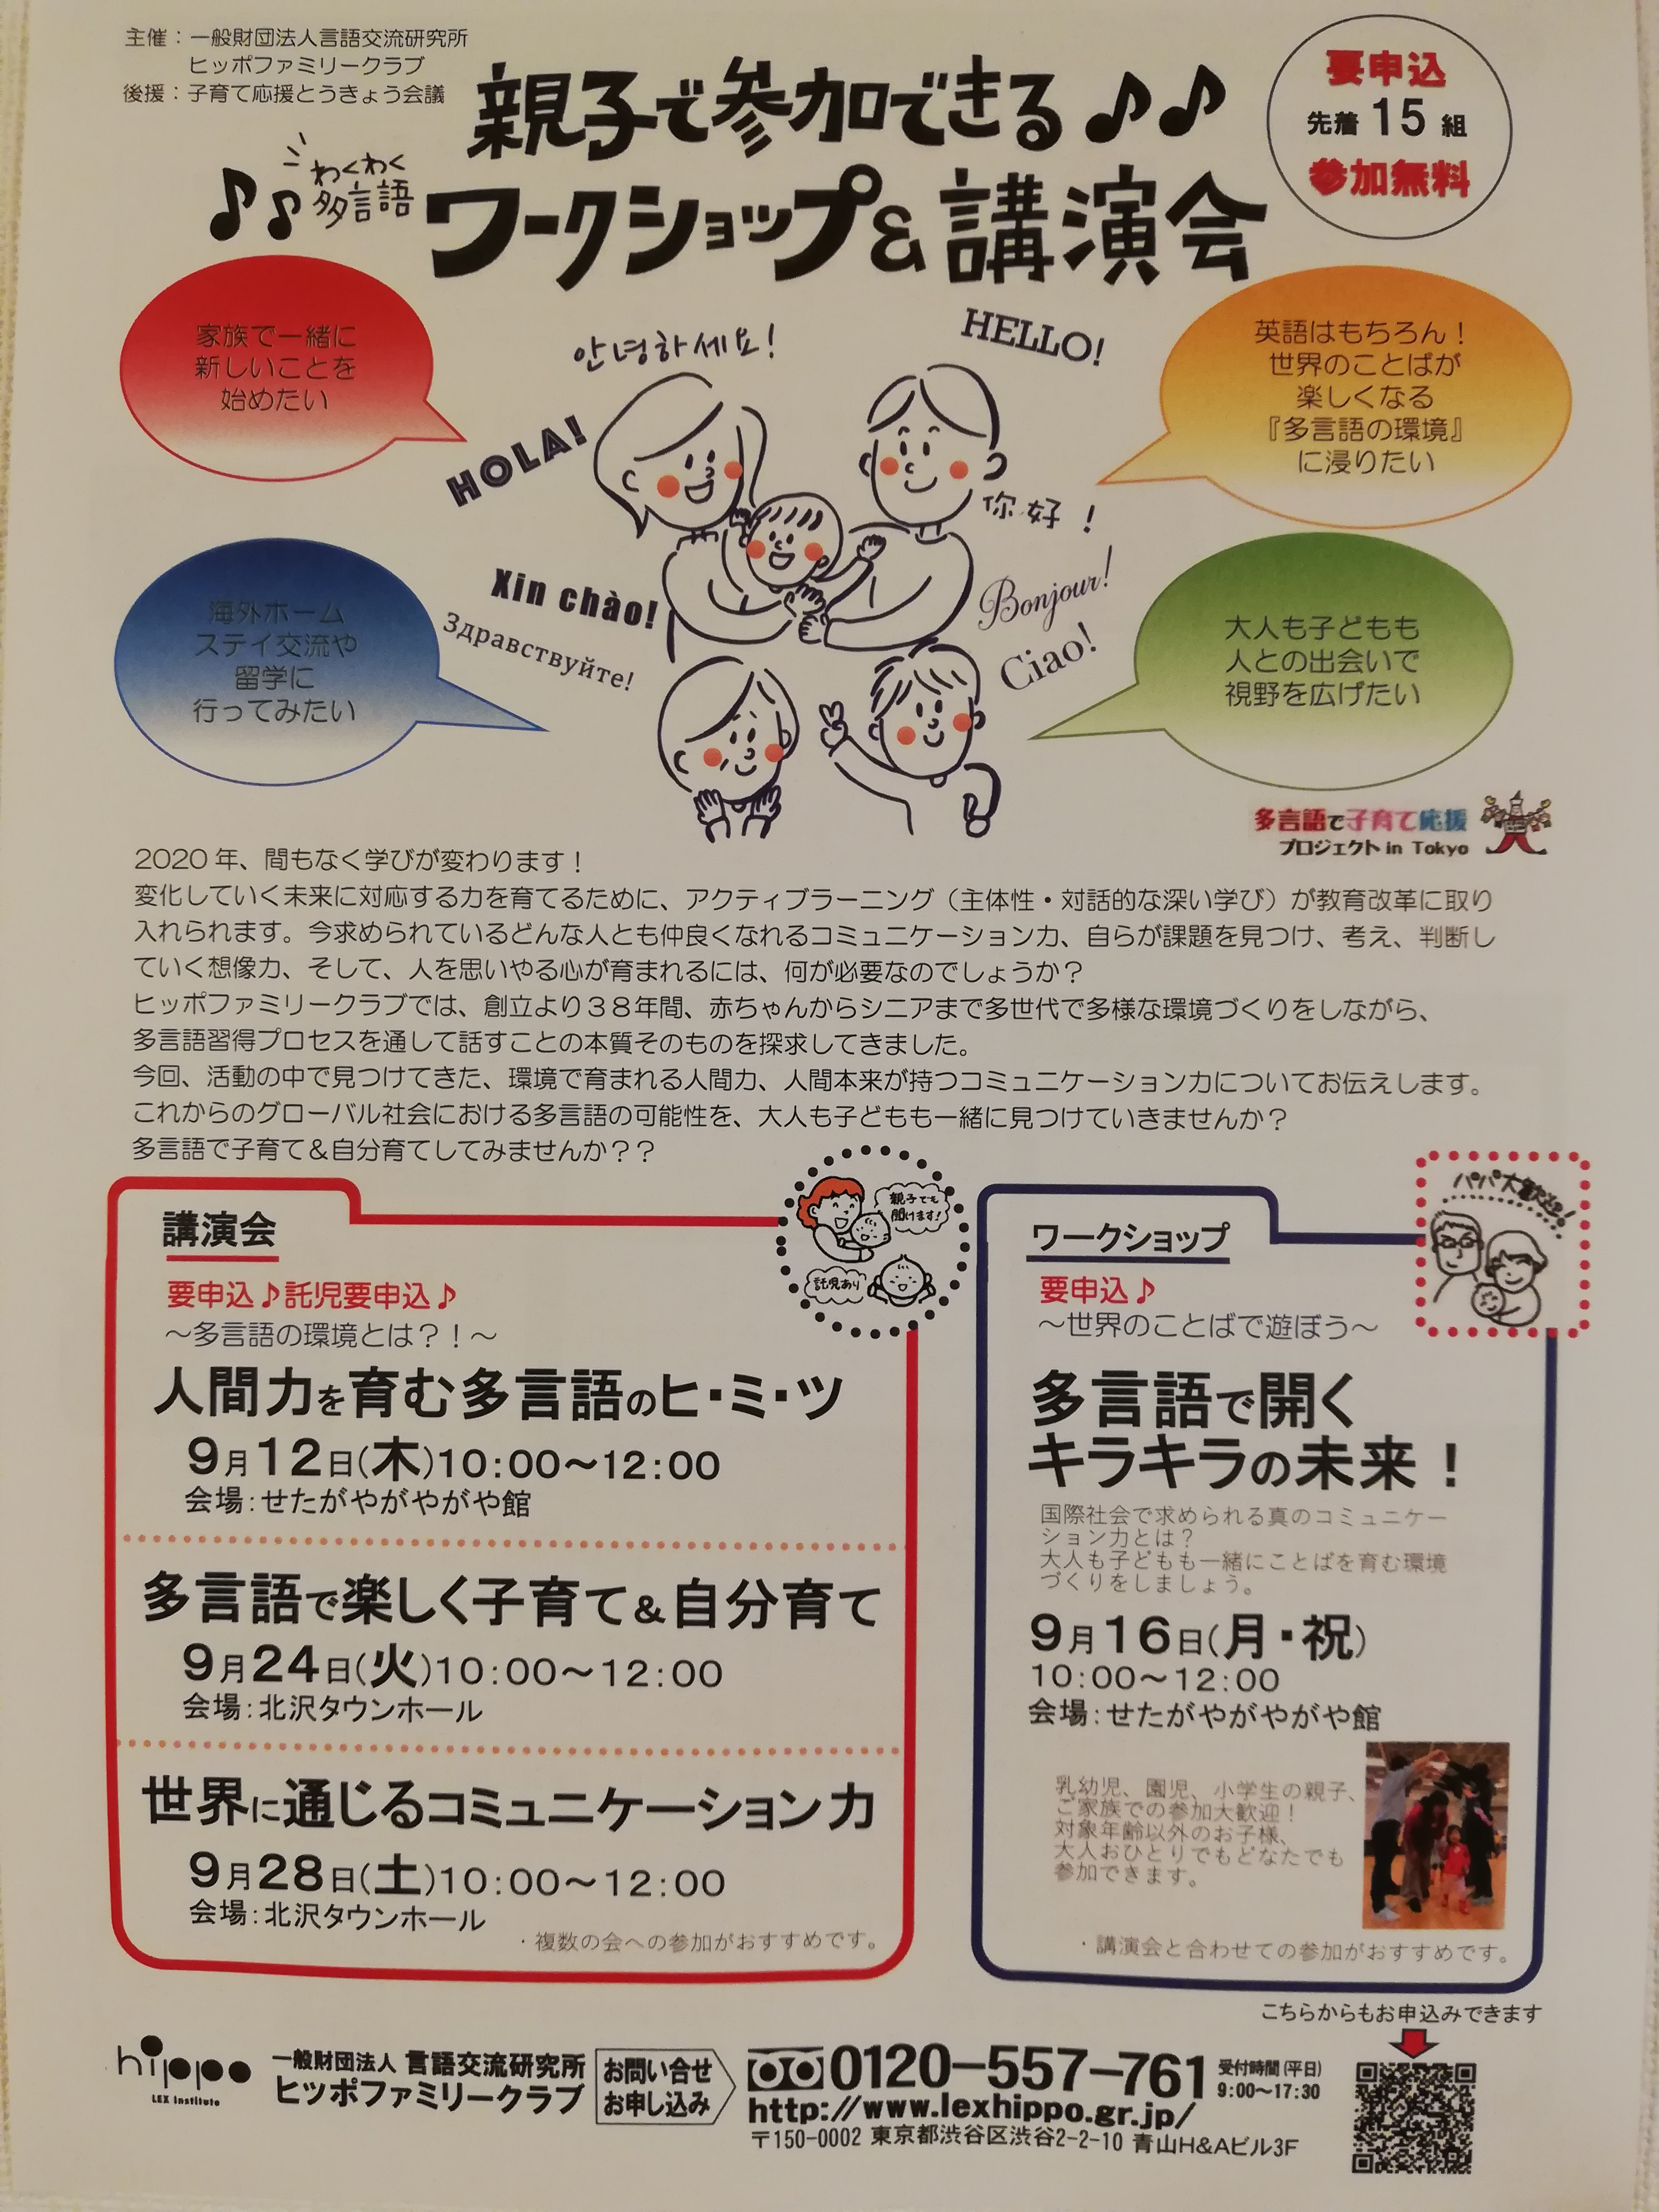 主催：一般財団法人言語交流研究所
ヒッポファミリークラブ
後援：子育て応援とうきょう会議
要申込
先着 15 組
参加無料
親子で参加できる♪♪
♪♫ わくわく
多言語
ワークショップ&講演会
家族で一緒に
新しいことを
始めたい
英語はもちろん！
世界のことばが
楽しくなる
『多言語の環境』
に浸りたい
안녕하세요!
HELLO!
HOLA!
你好！
Xin chào!
Bonjour!
Здравствуйте!
Ciao!
海外ホーム
ステイ交流や
留学に
行ってみたい
大人も子どもも
人との出会いで
視野を広げたい
多言語で子育て応援
プロジェクト in Tokyo
2020 年、間もなく学びが変わります！
変化していく未来に対応する力を育てるために、アクティブラーニング（主体性・対話的な深い学び）が教育改革に取り
入れられます。今求められているどんな人とも仲良くなれるコミュニケーション力、自らが課題を見つけ、考え、判断し
ていく想像力、そして、人を思いやる心が育まれるには、何が必要なのでしょうか？
ヒッポファミリークラブでは、創立より３８年間、赤ちゃんからシニアまで多世代で多様な環境づくりをしながら、
多言語習得プロセスを通して話すことの本質そのものを探求してきました。
今回、活動の中で見つけてきた、環境で育まれる人間力、人間本来が持つコミュニケーション力についてお伝えします。
これからのグローバル社会における多言語の可能性を、大人も子どもも一緒に見つけていきませんか？
多言語で子育て＆自分育てしてみませんか？？
講演会
親子でも
聞けます!
託児あり
要申込♪託児要申込♪
～多言語の環境とは？！～
人間力を育む多言語のヒ・ミ・ツ
9月12日(木)10:00～12:00
会場:せたがやがやがや館
多言語で楽しく子育て＆自分育て
9月24日(火)10:00～12:00
会場:北沢タウンホール
世界に通じるコミュニケーション力
9月28日(土)10:00～12:00
会場:北沢タウンホール
・複数の会への参加がおすすめです。
ワークショップ
パパ大歓迎!
要申込♪
～世界のことばで遊ぼう～
多言語で開く
キラキラの未来！
国際社会で求められる真のコミュニケー
ション力とは？
大人も子どもも一緒にことばを育む環境
づくりをしましょう。
9月16日(月・祝)
10:00～12:00
会場:せたがやがやがや館
乳幼児、園児、小学生の親子、
ご家族での参加大歓迎！
対象年齢以外のお子様、
大人おひとりでもどなたでも
参加できます。
・講演会と合わせての参加がおすすめです。
こちらからもお申込みできます
hippo
LEX Institute
一般財団法人 言語交流研究所
ヒッポファミリークラブ
お問い合せ
お申し込み
0120-557-761
受付時間(平日)
9:00～17:30
http://www.lexhippo.gr.jp/
〒150-0002 東京都渋谷区渋谷2-2-10 青山H&Aビル3F